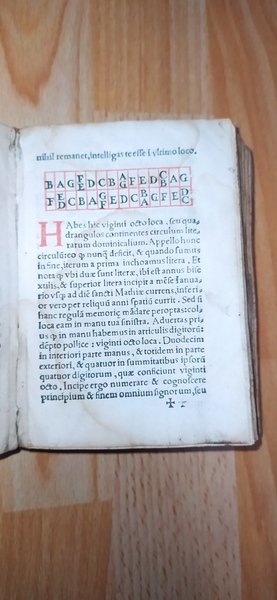 nihil remanet, intelligas te esse ĩ vltimo loco.
B A G F E D C B A G F E D C B A G
F E D C B A G F E D C B A G F E D C
HAbes hic viginti octo loca, seu qua
drangulos continentes circulum lite
rarum dominicalium. Appello hunc
circulũ eo ꝙ nunq̃ deficit, & quando sumus
in fine, iterum a prima inchoamus litera. Et
nota ꝙ vbi duæ sunt literæ, ibi est annus bise
xtilis, & superior litera incipit a mense Ianua
rio vsq; ad diẽ sancti Mathiæ currens, inferi
or vero pet reliquũ anni spatiũ currit. Sed si
hanc regulã memoriæ mãdare peroptas: col
loca eam in manu tua sinistra. Aduertas pri
us ꝙ in manu habemus in articulis digitorũ
dẽpto pollice: viginti octo loca. Duodecim
in interiori parte manus, & totidem in parte
exteriori, & quatuor in summitatibus ipsorũ
quatuor digitorum, quæ conficiunt viginti
octo. Incipe ergo numerare & cognoscere
principium & finem omnium signorum, seu